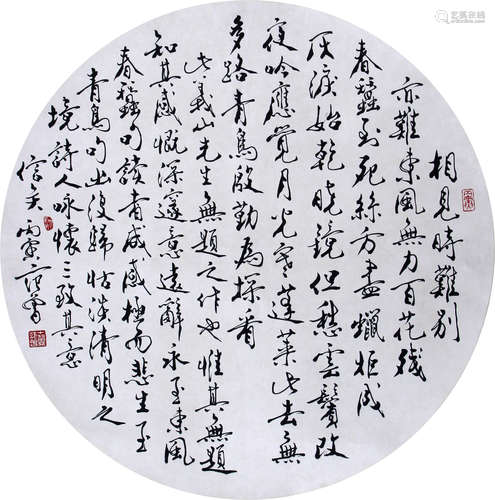 相見時難別
亦難東風無力百花殘
春蠶到死絲方盡蠟炬成
灰淚始乾曉鏡但愁雲鬢改
夜吟應覺月光寒蓬萊此去無
多路青鳥殷勤為探看
此義山先生無題之作也惟其無題
知其感慨深邃意遠辭永至東風
春蠶句讀者咸感極而悲生至
青鳥句出復歸恬淡清明之
境詩人咏懷之致其意
信矣丙寅范曾